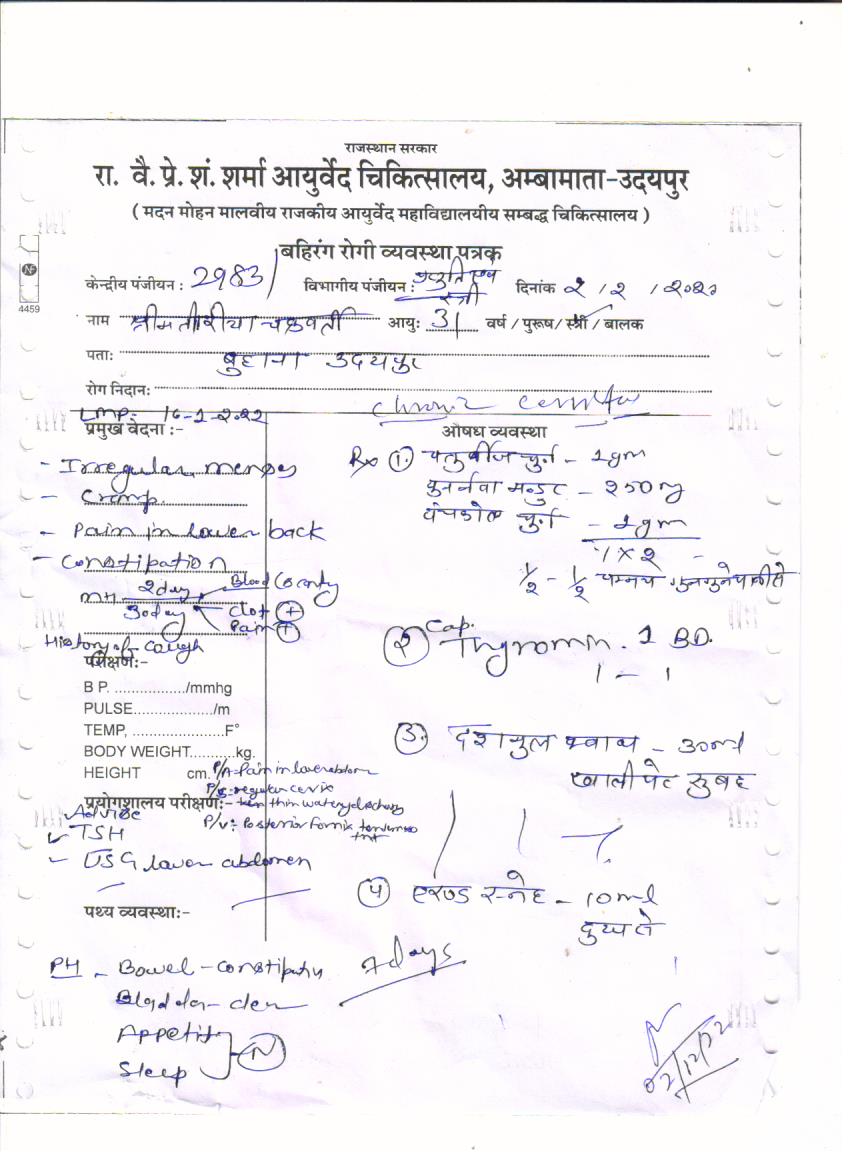 राजस्थान सरकार
रा. वै. प्रे. शं. शर्मा आयुर्वेद चिकित्सालय, अम्बामाता-उदयपुर
( मदन मोहन मालवीय राजकीय आयुर्वेद महाविद्यालयीय सम्बद्ध चिकित्सालय )
बहिरंग रोगी व्यवस्था पत्रक
केन्द्रीय पंजीयन : 2983 विभागीय पंजीयन : प्रसूति एवं स्त्री दिनांक २ / २ / २०२२
4459
नाम श्रीमती रीया चक्रवर्ती आयुः 31 वर्ष / पुरूष / स्त्री / बालक
पताः उदयपुर
रोग निदानः chronic
LMP: 16-1-2022
प्रमुख वेदना :-
- Irregular menses
- Cramp
- Pain in lower back
- Constipation
MH 2day Blood Scanty
30day Clot (+)
Pain (+)
History of - cough
औषध व्यवस्था
Rx ① चतुर्बीज चूर्ण - 1gm
पुनर्नवा मन्डुर - २५०mg
पंचकोल चूर्ण - 1gm
1 X 2
1/2 - 1/2
② Cap. Thyromin. 1 BD.
1 - 1
③ दशमुल क्वाथ - 30ml
खाली पेट सुबह
④ एरण्ड स्नेह - 10ml
दुध से
परीक्षण:-
B P. ................./mmhg
PULSE................../m
TEMP, ......................F°
BODY WEIGHT...........kg.
HEIGHT cm.
P/A- Pain in lower abdomen
P/S- regular cervix
thin watery discharge
P/V:- Posterior fornix tenderness
प्रयोगशालय परीक्षण:-
Advise
TSH
- USG lower abdomen
पथ्य व्यवस्था:-
7days
PH - Bowel - Constipation
Bladder - clear
Appetite
Sleep } (N)
02/12/22